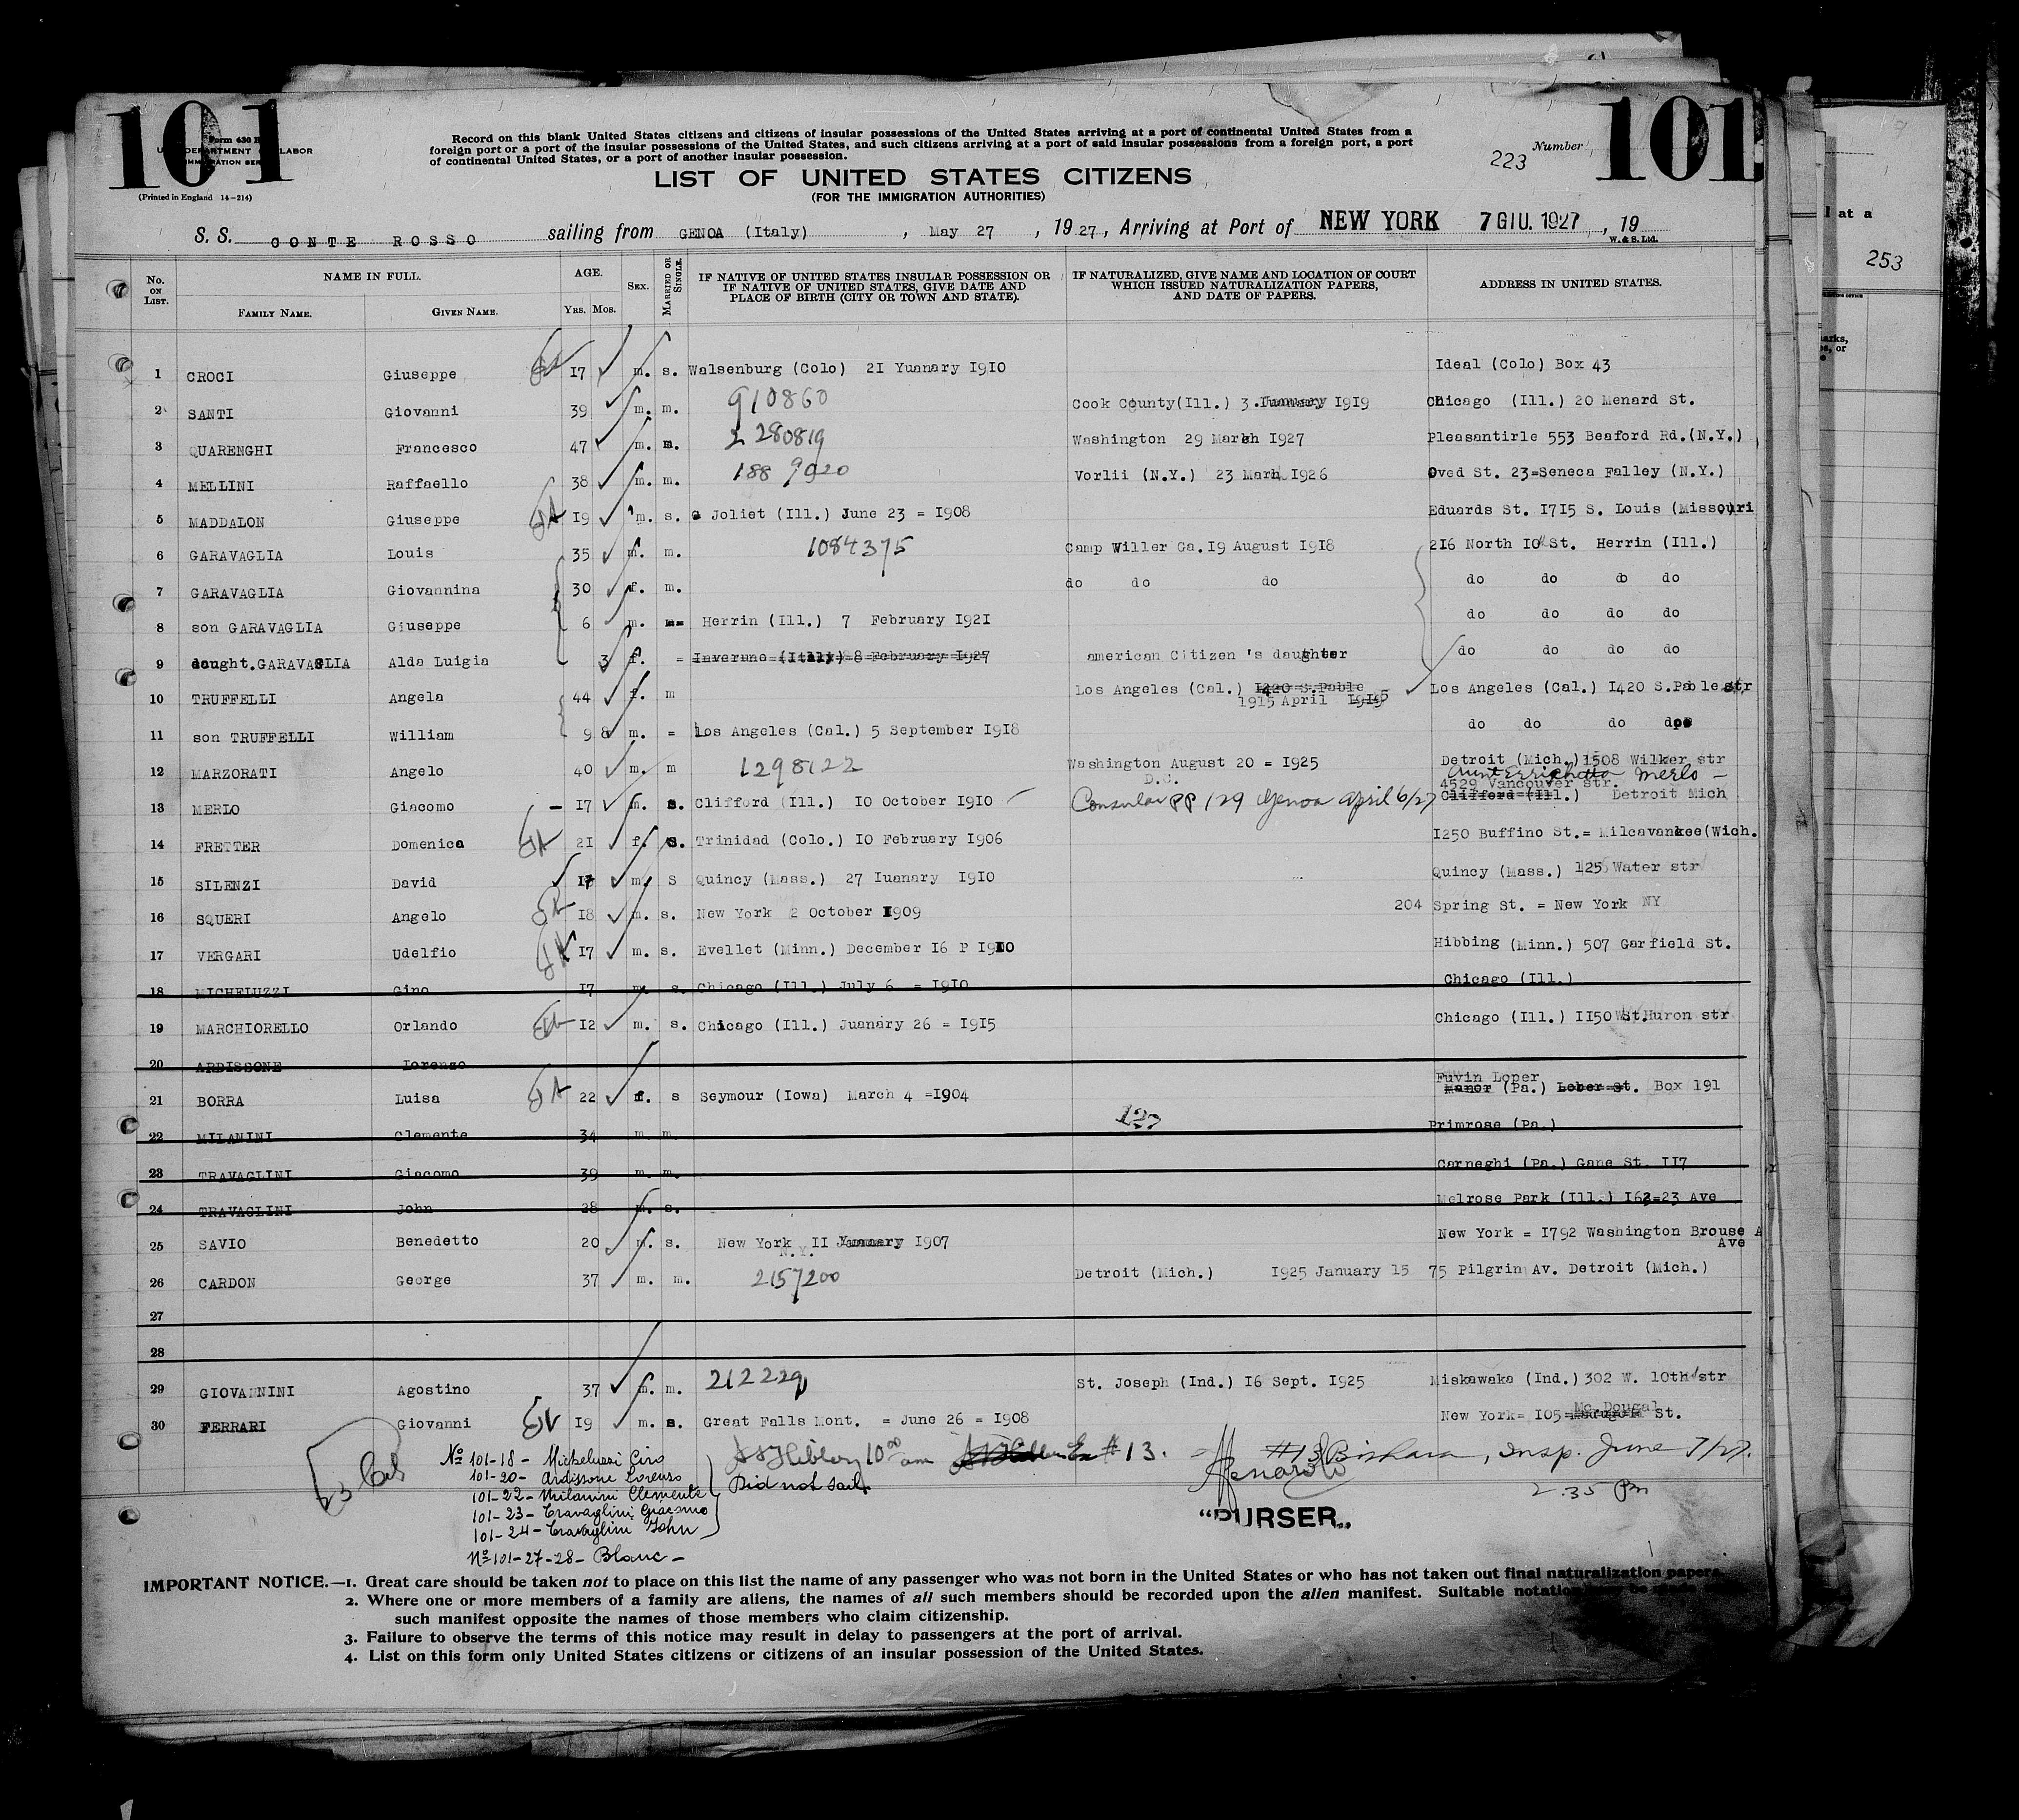 101
101
Form 630 B
U.S. DEPARTMENT OF LABOR
IMMIGRATION SERVICE
(Printed in England 14-214)
Record on this blank United States citizens and citizens of insular possessions of the United States arriving at a port of continental United States from a
foreign port or a port of the insular possessions of the United States, and such citizens arriving at a port of said insular possessions from a foreign port, a port
of continental United States, or a port of another insular possession.
223 Number
LIST OF UNITED STATES CITIZENS
(FOR THE IMMIGRATION AUTHORITIES)
S. S. CONTE ROSSO sailing from GENOA (Italy), May 27, 1927, Arriving at Port of NEW YORK 7 GIU. 1927, 19
W. & S. Ltd.
253
l at a
No. ON LIST. NAME IN FULL. AGE. SEX. MARRIED OR SINGLE. IF NATIVE OF UNITED STATES INSULAR POSSESSION OR IF NATIVE OF UNITED STATES, GIVE DATE AND PLACE OF BIRTH (CITY OR TOWN AND STATE). IF NATURALIZED, GIVE NAME AND LOCATION OF COURT WHICH ISSUED NATURALIZATION PAPERS, AND DATE OF PAPERS. ADDRESS IN UNITED STATES.
FAMILY NAME. GIVEN NAME. YRS. MOS.
1 CROCI Giuseppe 17 m. s. Walsenburg (Colo) 21 Yuanary 1910 Ideal (Colo) Box 43
2 SANTI Giovanni 39 m. m. 910860 Cook County(Ill.) 3 January 1919 Chicago (Ill.) 20 Menard St.
3 QUARENGHI Francesco 47 m. m. 2280819 Washington 29 March 1927 Pleasantirle 553 Beaford Rd.(N.Y.)
4 MELLINI Raffaello 38 m. m. 1889020 Vorlii (N.Y.) 23 March 1926 Oved St. 23=Seneca Falley (N.Y.)
5 MADDALON Giuseppe 19 m. s. Joliet (Ill.) June 23 = 1908 Eduards St. 1715 S. Louis (Missouri
6 GARAVAGLIA Louis 35 m. m. 1084375 Camp Willer Ga. 19 August 1918 216 North 10 St. Herrin (Ill.)
7 GARAVAGLIA Giovannina 30 f. m. do do do do do do do
8 son GARAVAGLIA Giuseppe 6 m. Herrin (Ill.) 7 February 1921 do do do do
9 daught.GARAVAGLIA Alda Luigia 3 f. = Inveruno (Italy) 8 February 1927 american Citizen 's daughter do do do do
10 TRUFFELLI Angela 44 f. m Los Angeles (Cal.) 1420 S.Pable Los Angeles (Cal.) 1420 S.Pable str
1915 April
11 son TRUFFELLI William 9 8 m. = Los Angeles (Cal.) 5 September 1918 do do do do
12 MARZORATI Angelo 40 m. m 1298122 Washington August 20 = 1925 Detroit (Mich.) 1508 Wilker str
D.C.
Merlo -
4529 Vancouver str.
13 MERLO Giacomo 17 m. s. Clifford (Ill.) 10 October 1910 Consular PP 129 Genoa April 6/27 Clifford (Ill.) Detroit Mich
14 FRETTER Domenica 21 f. s. Trinidad (Colo.) 10 February 1906 1250 Buffino St.= Milcavankee(Wich.
15 SILENZI David 17 m. s Quincy (Mass.) 27 Iuanary 1910 Quincy (Mass.) 125 Water str
16 SQUERI Angelo 18 m. s. New York 2 October 1909 204 Spring St. = New York NY
17 VERGARI Udelfio 17 m. s. Evellet (Minn.) December 16 1910 Hibbing (Minn.) 507 Garfield St.
18 MICHELUZZI Gino 17 m. s. Chicago (Ill.) July 6 = 1910 Chicago (Ill.)
19 MARCHIORELLO Orlando 12 m. s. Chicago (Ill.) Juanary 26 = 1915 Chicago (Ill.) 1150 W.Huron str
20 ARDISSONE Lorenzo
Fuvin Loper
21 BORRA Luisa 22 f. s Seymour (Iowa) March 4 =1904 Manor (Pa.) Lober st. Box 191
127
22 MILANINI Clemente 34 m. m Primrose (Pa.)
23 TRAVAGLINI Giacomo 39 m. m. Carneghi (Pa.) Gane St. 117
24 TRAVAGLINI John 28 m. s. Melrose Park (Ill.) 162=23 Ave
25 SAVIO Benedetto 20 m. s. New York 11 January 1907 New York = 1792 Washington Brouse A
N.Y. Ave
26 CARDON George 37 m. m. 2157200 Detroit (Mich.) 1925 January 15 75 Pilgrin Av. Detroit (Mich.)
27
28
29 GIOVANNINI Agostino 37 m. m. 212229 St. Joseph (Ind.) 16 Sept. 1925 Miskawaka (Ind.) 302 W. 10th str
30 FERRARI Giovanni 19 m. s. Great Falls Mont. = June 26 = 1908 New York= 105 Mc.Dougal St.
No 101-18 - Micheluzzi Ciro
101-20 - Ardissone Lorenzo
101-22 - Milanini Clemente
101-23 - Travaglini Giacomo
101-24 - Travaglini John
Did not sail
No 101-27-28 - Blanc -
10 00 am
# 13.
#13 Bishara, Insp. June 7/27.
2.35 Pm
"PURSER„
IMPORTANT NOTICE.—1. Great care should be taken not to place on this list the name of any passenger who was not born in the United States or who has not taken out final naturalization papers.
2. Where one or more members of a family are aliens, the names of all such members should be recorded upon the alien manifest. Suitable notation
such manifest opposite the names of those members who claim citizenship.
3. Failure to observe the terms of this notice may result in delay to passengers at the port of arrival.
4. List on this form only United States citizens or citizens of an insular possession of the United States.